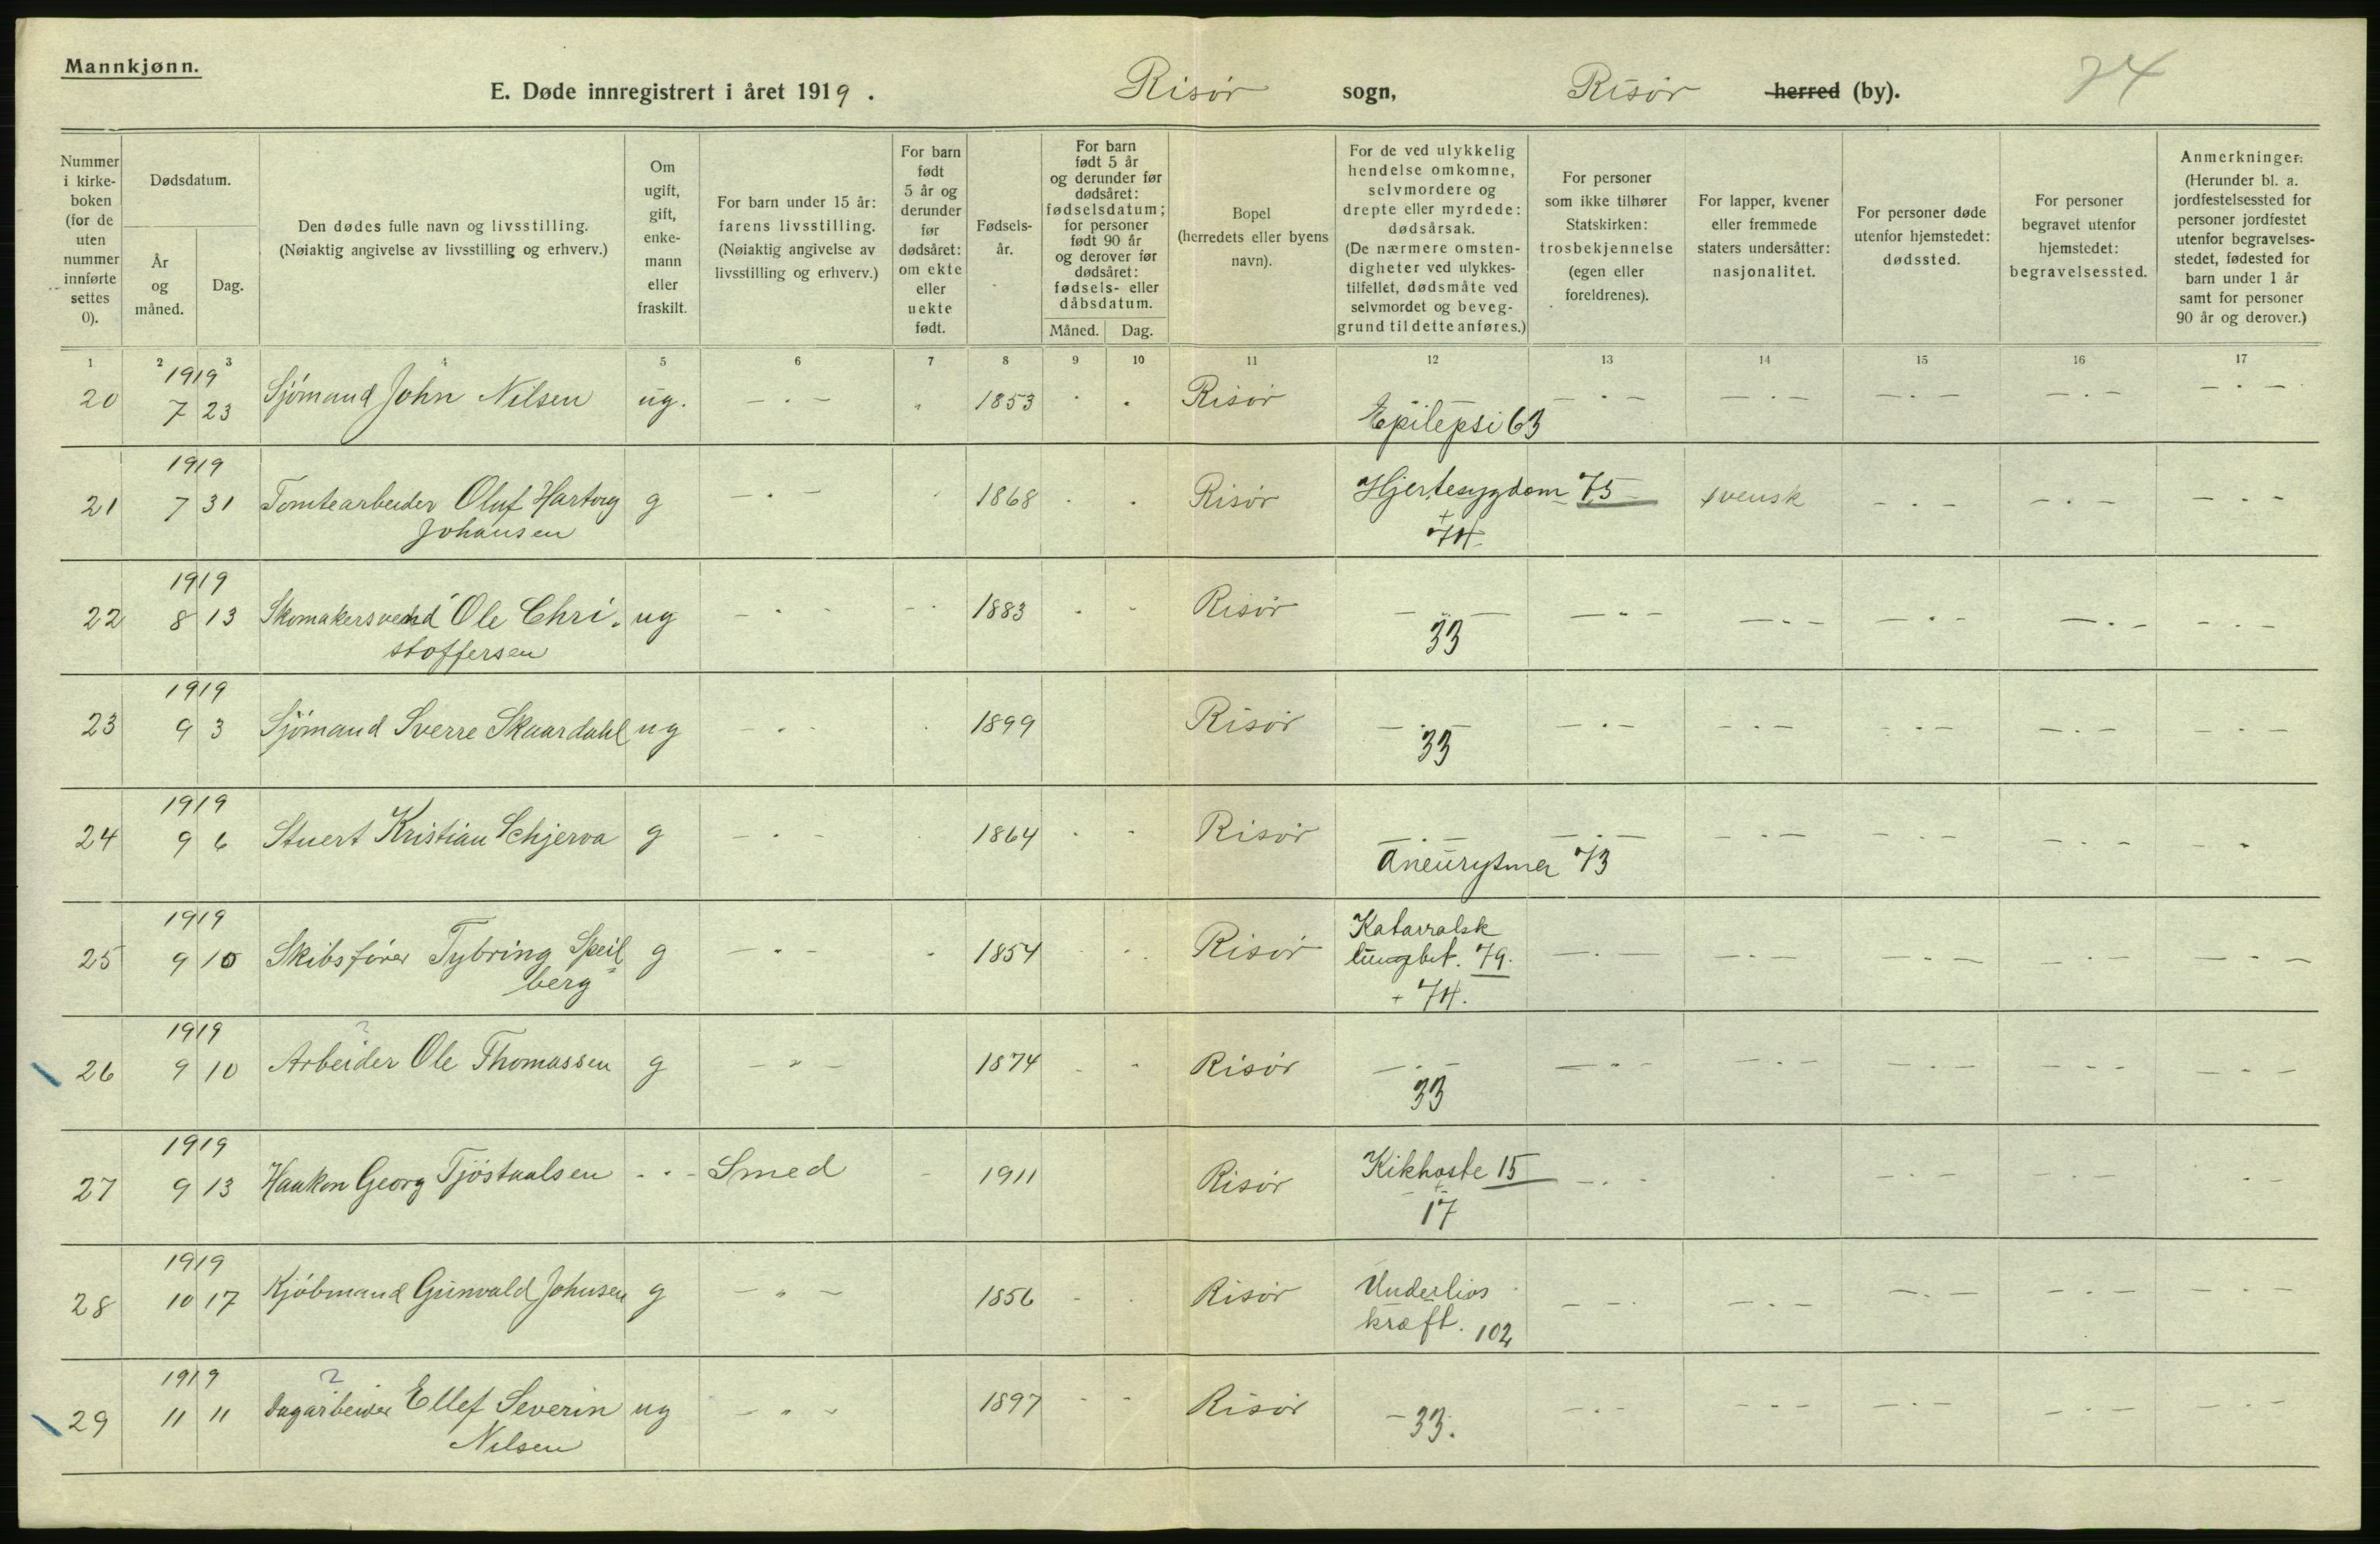 Mannkjønn.
E. Døde innregistrert i året 1919. Risör sogn, Risör herred (by). 74
Nummer i kirke-boken (for de uten nummer innførte settes 0).
Dødsdatum.
År og måned.
Dag.
Den dødes fulle navn og livsstilling. (Nøiaktig angivelse av livsstilling og erhverv.)
Om ugift, gift, enke-mann eller fraskilt.
For barn under 15 år: farens livsstilling. (Nøiaktig angivelse av livsstilling og erhverv.)
For barn født 5 år og derunder før dødsåret: om ekte eller uekte født.
Fødsels-år.
For barn født 5 år og derunder før dødsåret: fødselsdatum; for personer født 90 år og derover før dødsåret: fødsels- eller dåbsdatum.
Måned. Dag.
Bopel (herredets eller byens navn).
For de ved ulykkelig hendelse omkomne, selvmordere og drepte eller myrdede: dødsårsak. (De nærmere omsten-digheter ved ulykkes-tilfellet, dødsmåte ved selvmordet og beveg-grund til dette anføres.)
For personer som ikke tilhører Statskirken: trosbekjennelse (egen eller foreldrenes).
For lapper, kvener eller fremmede staters undersåtter: nasjonalitet.
For personer døde utenfor hjemstedet: dødssted.
For personer begravet utenfor hjemstedet: begravelsessted.
Anmerkninger: (Herunder bl. a. jordfestelsessted for personer jordfestet utenfor begravelses-stedet, fødested for barn under 1 år samt for personer 90 år og derover.)
1 2 3 4 5 6 7 8 9 10 11 12 13 14 15 16 17
1919
20 7 23 Sjömand John Nilsen ug. - . - 1853 Risör - . - - . - - . - - . - - . -
Epilepsi 63
1919
21 7 31 Tomtearbeider Oluf Hartvig g - . - 1868 Risör Hjertesygdom 75 svensk - . - - . - - . -
Johansen + 74.
1919
22 8 13 Skomakersvend Ole Chri- ug - . - 1883 Risör - . - - . - - . - - . - - . - - . -
stoffersen 33
1919
23 9 3 Sjömand Sverre Skaardahl ug - . - 1899 Risör - . - - . - - . - - . - - . - - . -
33
1919
24 9 6 Stuert Kristian Schjerva g - . - 1864 Risör - . - - . - - . - - . - - . - - .
Aneurysmer 73
1919
25 9 10 Skibsförer Tybring Speil g - . - 1854 Risör Katarralsk - . - - . - - . - - . - - . -
berg lungebet. 79.
+ 74.
1919 ?
26 9 10 Arbeider Ole Thomassen g - " - 1874 Risör - . - - . - - . - - . - - . - - . -
33
1919
27 9 13 Haakon Georg Tjöstaalsen - . - Smed 1911 Risör Kikhoste 15 - . - - . - - . - . -
+ 17
1919
28 10 17 Kjöbmand Gunvald Johnsen g - " - 1856 Risör Underlivs - . - - . - - . - - . - - . -
kræft. 102
1919 ?
29 11 11 Dagarbeider Ellef Severin ug - " - 1897 Risör - 33. - . - - . - - . - - . - - . -
Nilsen